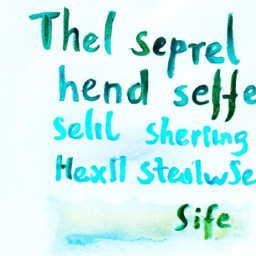 Thel seprel
hend seffe
selil sherling
Hexll Stealwse
Sife